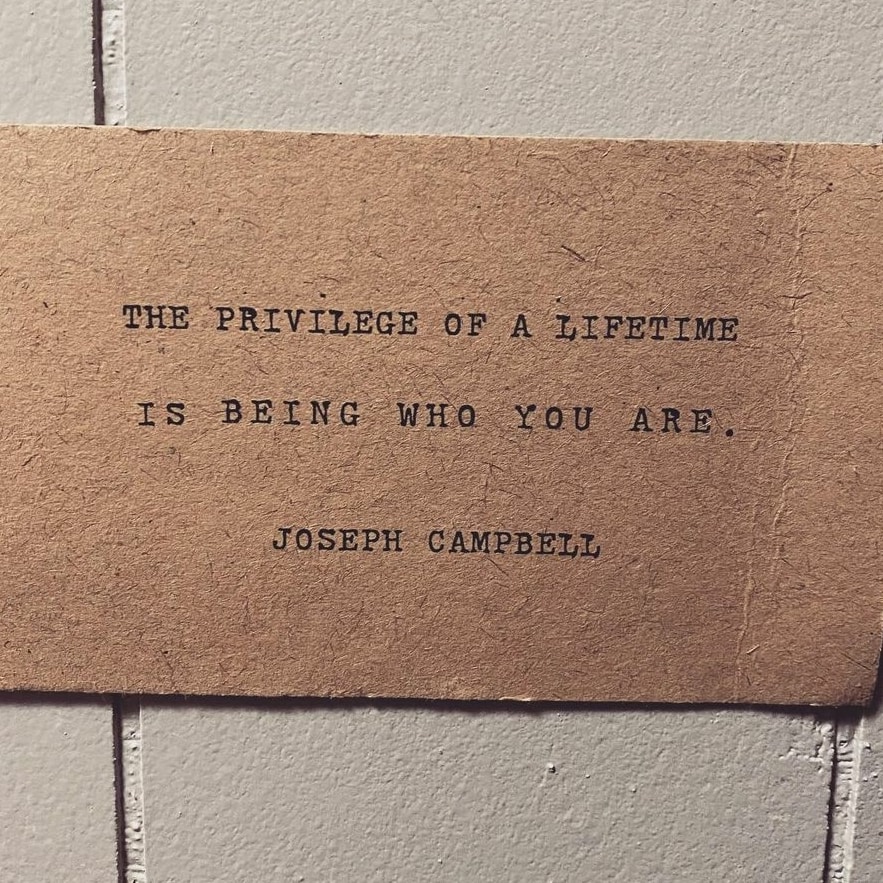 THE PRIVILEGE OF A LIFETIME
IS BEING WHO YOU ARE.
JOSEPH CAMPBELL